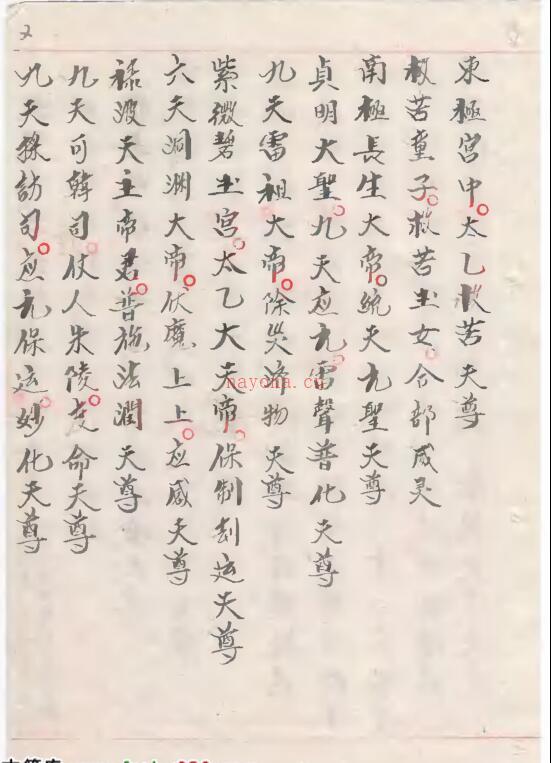 東極宮中。太乙救苦天尊
救苦童子。救苦玉女。合部咸灵
南極長生大帝。統天元聖天尊
貞明大聖。九天應元雷聲普化天尊
九天雷祖大帝。除災沛物天尊
紫微碧玉宮。太乙大天帝。保制劫运天尊
六天洞渊大帝。伏魔上上。应感天尊
禄波天主帝君。普施法潤天尊
九天可韓司。仗人朱陵。度命天尊
九天採訪司。应元保运。妙化天尊
nayona.cn